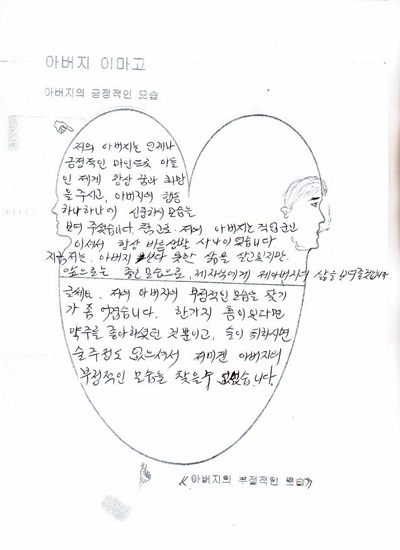 아버지 이마고
아버지의 긍정적인 모습
저의 아버지는 언제나
긍정적인 마인드로 아들
인 제게 항상 꿈과 희망
을 주시고, 아버지의 행동
하나하나에 신중하신 모습을
보여 주셨습니다. 참고로 저의 아버지는 직업군인
이셔서 항상 바른생활 사나이였습니다
지금 저는 아버지 보다 못한 삶을 살고있지만.
앞으로는 좋은 모습으로, 제자식에게 제 아버지의 삶을 보여줄것입니다
글쎄요. 저의 아버지의 부정적인 모습을 찾기
가 좀 어렵습니다. 한가지 흠이 된다면
약주를 좋아하셨던 것뿐이고, 술이 취하시면
술주정도 없으셔서 저에겐 아버지의
부정적인 모습을 찾을수 없었습니다.
《아버지의 부정적인 모습》